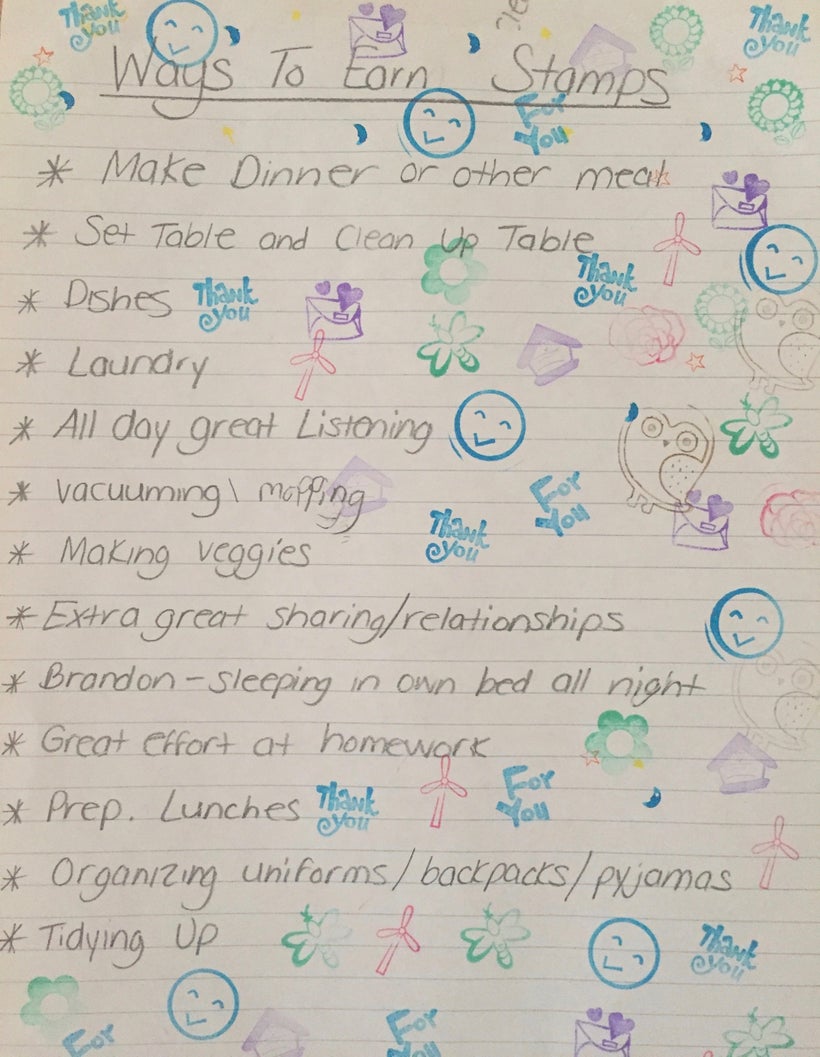 Thank you
Thank you
Ways To Earn Stamps
For You
* Make Dinner or other meal
* Set Table and Clean Up Table
Thank you
* Dishes Thank you
* Laundry
* All day great Listening
* Vacuuming\ mopping
For You
Thank you
* Making veggies
* Extra great sharing/relationships
* Brandon - sleeping in own bed all night
* Great effort at homework
* Prep. Lunches Thank you For You
* Organizing uniforms/backpacks/pyjamas
* Tidying Up Thank you
For
For You